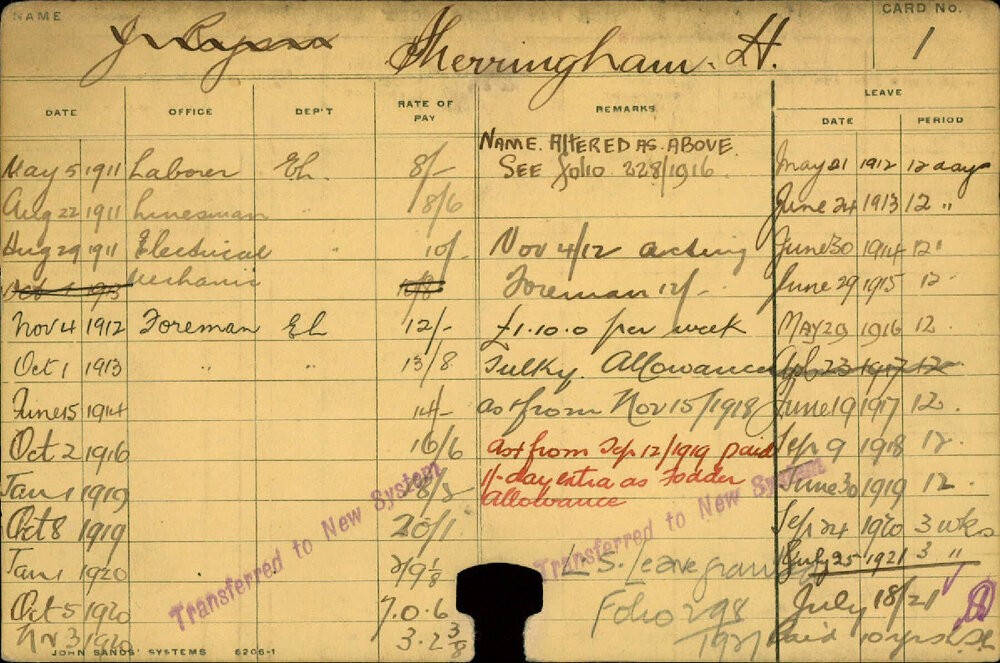 NAME
CARD No.
Sherringham. H.
1
DATE OFFICE DEP'T RATE OF PAY REMARKS LEAVE
DATE PERIOD
NAME. ALTERED AS. ABOVE.
May 5 1911 Laborer El. 8/- SEE folio 228/1916. May 21 1912 12 days
Aug 22 1911 Linesman 8/6 June 24 1913 12 "
Aug 29 1911 Electrical " 10/- Nov 4/12 acting June 30 1914 12
Oct 1 1913 Mechanic 10/8 Foreman 12/- June 29 1915 12
Nov 4 1912 Foreman El 12/- £1.10.0 per week May 29 1916 12.
Oct 1 1913 " " 13/8 Sulky. Allowance 23 1917 12
June 15 1914 14/- as from Nov 15/1918 June 19 1917 12.
Oct 2 1916 16/6 as from Sep 12/1919 paid Sep 9 1918 12.
Jan 1 1919 18/3 1/- day extra as Fodder June 30 1919 12.
Allowance
Oct 8 1919 20/1 Sep 24 1920 3 wks
Jan 1 1920 L. S. Leave July 25 1921 3 "
Oct 5 1920 7.0.6 Folio 298 July 18/21
Nov 3 1920 3.2 3/8 1921 Paid 10 yrs
Transferred to New System
Transferred to New System
JOHN SANDS' SYSTEMS 6206-1